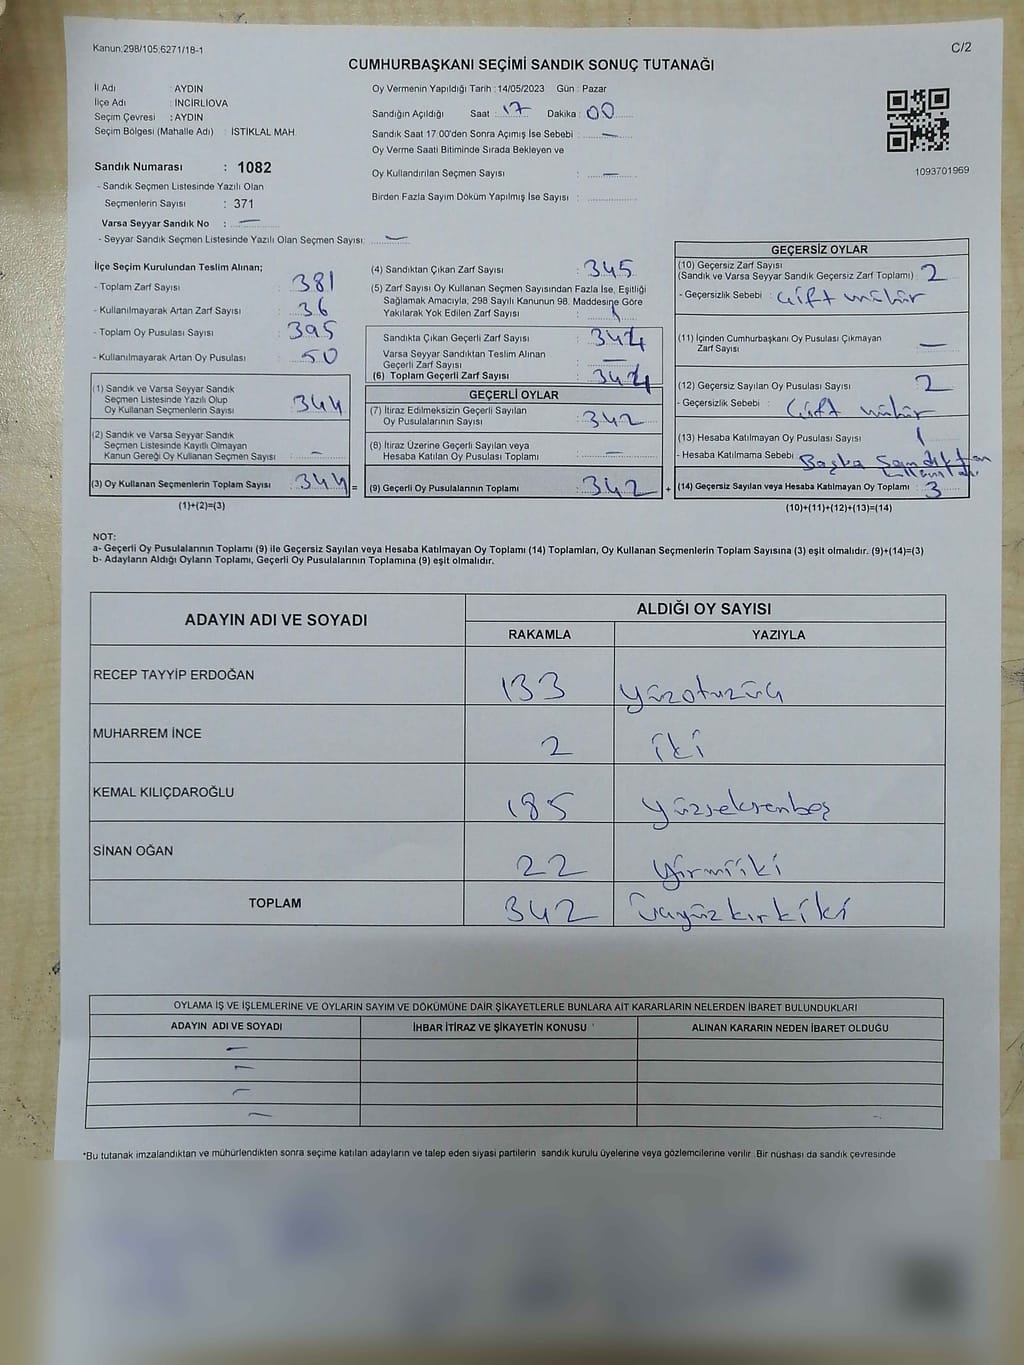 Kanun;298/105.6271/18-1
C/2
CUMHURBAŞKANI SEÇİMİ SANDIK SONUÇ TUTANAĞI
İl Adı : AYDIN
İlçe Adı : İNCİRLİOVA
Seçim Çevresi : AYDIN
Seçim Bölgesi (Mahalle Adı) : İSTİKLAL MAH.
Sandık Numarası : 1082
- Sandık Seçmen Listesinde Yazılı Olan
Seçmenlerin Sayısı : 371
Varsa Seyyar Sandık No : —
- Seyyar Sandık Seçmen Listesinde Yazılı Olan Seçmen Sayısı: —
Oy Vermenin Yapıldığı Tarih : 14/05/2023 Gün : Pazar
Sandığın Açıldığı Saat : 17 Dakika : 00
Sandık Saat 17:00'den Sonra Açımış İse Sebebi : —
Oy Verme Saati Bitiminde Sırada Bekleyen ve
Oy Kullandırılan Seçmen Sayısı : —
Birden Fazla Sayım Döküm Yapılmış İse Sayısı :
1093701969
İlçe Seçim Kurulundan Teslim Alınan;
- Toplam Zarf Sayısı : 381
- Kullanılmayarak Artan Zarf Sayısı : 36
- Toplam Oy Pusulası Sayısı : 395
- Kullanılmayarak Artan Oy Pusulası : 50
(1) Sandık ve Varsa Seyyar Sandık
Seçmen Listesinde Yazılı Olup
Oy Kullanan Seçmenlerin Sayısı : 344
(2) Sandık ve Varsa Seyyar Sandık
Seçmen Listesinde Kayıtlı Olmayan
Kanun Gereği Oy Kullanan Seçmen Sayısı : —
(3) Oy Kullanan Seçmenlerin Toplam Sayısı : 344 =
(1)+(2)=(3)
(4) Sandıktan Çıkan Zarf Sayısı : 345
(5) Zarf Sayısı Oy Kullanan Seçmen Sayısından Fazla İse, Eşitliği
Sağlamak Amacıyla, 298 Sayılı Kanunun 98. Maddesine Göre
Yakılarak Yok Edilen Zarf Sayısı : 1
Sandıkta Çıkan Geçerli Zarf Sayısı : 344
Varsa Seyyar Sandıktan Teslim Alınan
Geçerli Zarf Sayısı : —
(6) Toplam Geçerli Zarf Sayısı : 344
GEÇERLİ OYLAR
(7) İtiraz Edilmeksizin Geçerli Sayılan
Oy Pusulalarının Sayısı : 342
(8) İtiraz Üzerine Geçerli Sayılan veya
Hesaba Katılan Oy Pusulası Toplamı : —
(9) Geçerli Oy Pusulalarının Toplamı : 342 +
GEÇERSİZ OYLAR
(10) Geçersiz Zarf Sayısı
(Sandık ve Varsa Seyyar Sandık Geçersiz Zarf Toplamı) : 2
- Geçersizlik Sebebi : Çift mühür
(11) İçinden Cumhurbaşkanı Oy Pusulası Çıkmayan
Zarf Sayısı : —
(12) Geçersiz Sayılan Oy Pusulası Sayısı : 2
- Geçersizlik Sebebi : Çift mühür
(13) Hesaba Katılmayan Oy Pusulası Sayısı : 1
- Hesaba Katılmama Sebebi : Başka Sandıktan
(14) Geçersiz Sayılan veya Hesaba Katılmayan Oy Toplamı : 3
(10)+(11)+(12)+(13)=(14)
NOT:
a- Geçerli Oy Pusulalarının Toplamı (9) ile Geçersiz Sayılan veya Hesaba Katılmayan Oy Toplamı (14) Toplamları, Oy Kullanan Seçmenlerin Toplam Sayısına (3) eşit olmalıdır. (9)+(14)=(3)
b- Adayların Aldığı Oyların Toplamı, Geçerli Oy Pusulalarının Toplamına (9) eşit olmalıdır.
ADAYIN ADI VE SOYADI ALDIĞI OY SAYISI
RAKAMLA YAZIYLA
RECEP TAYYİP ERDOĞAN 133 yüzotuzüç
MUHARREM İNCE 2 iki
KEMAL KILIÇDAROĞLU 185 yüzseksenbeş
SİNAN OĞAN 22 yirmiiki
TOPLAM 342 üçyüzkırkiki
OYLAMA İŞ VE İŞLEMLERİNE VE OYLARIN SAYIM VE DÖKÜMÜNE DAİR ŞİKAYETLERLE BUNLARA AİT KARARLARIN NELERDEN İBARET BULUNDUKLARI
ADAYIN ADI VE SOYADI İHBAR İTİRAZ VE ŞİKAYETİN KONUSU ALINAN KARARIN NEDEN İBARET OLDUĞU
—
—
—
—
*Bu tutanak imzalandıktan ve mühürlendikten sonra seçime katılan adayların ve talep eden siyasi partilerin sandık kurulu üyelerine veya gözlemcilerine verilir. Bir nüshası da sandık çevresinde